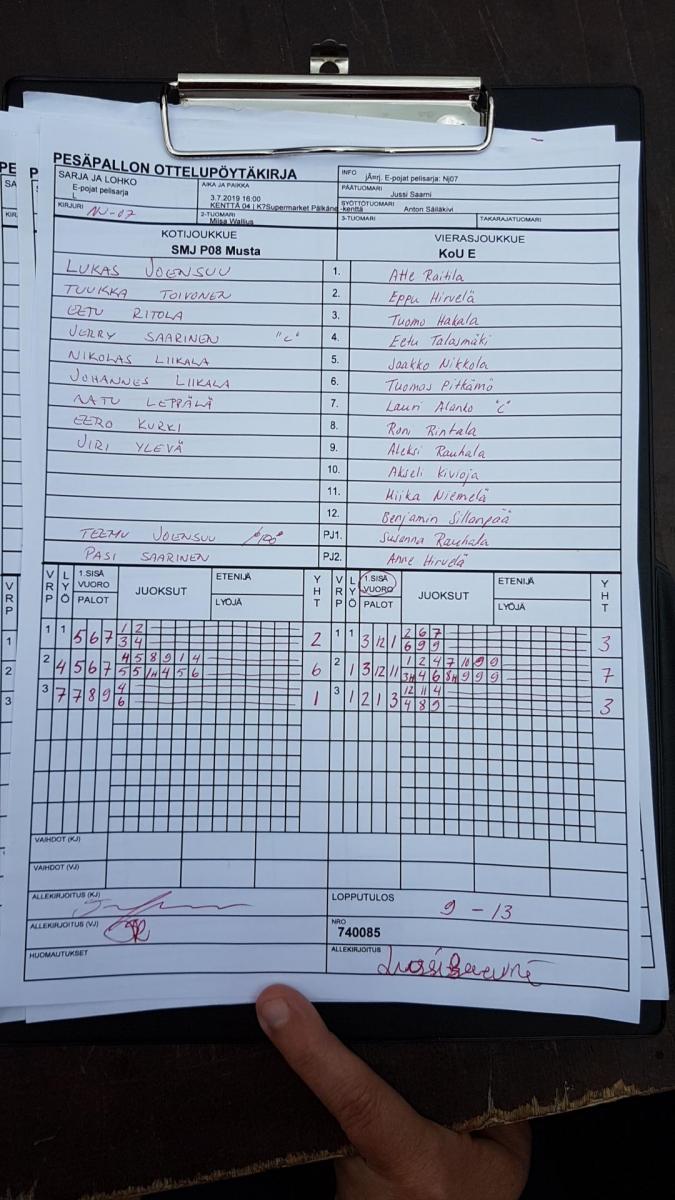 PESÄPALLON OTTELUPÖYTÄKIRJA
SARJA JA LOHKO
E-pojat pelisarja
L
AIKA JA PAIKKA
3.7.2019 16:00
KENTTÄ 04 | K7Supermarket Pälkäne -kenttä
INFO
E-pojat pelisarja: Nj07
PÄÄTUOMARI
Jussi Saarni
KIRJURI
NJ-07
2-TUOMARI
Miisa Wallius
SYÖTTÖTUOMARI
Anton Säiläkivi
3-TUOMARI
TAKARAJATUOMARI
KOTIJOUKKUE
SMJ P08 Musta
VIERASJOUKKUE
KoU E
LUKAS JOENSUU 1. Atte Raitila
TUUKKA TOIVONEN 2. Eppu Hirvelä
EETU RITOLA 3. Tuomo Hakala
JERRY SAARINEN "C" 4. Eetu Talasmäki
NIKOLAS LIIKALA 5. Jaakko Nikkola
JOHANNES LIIKALA 6. Tuomas Pitkämö
AATU LEPPÄLÄ 7. Lauri Alanko "C"
EERO KURKI 8. Roni Rintala
JIRI YLEVÄ 9. Aleksi Rauhala
10. Akseli Kivioja
11. Miika Niemelä
12. Benjamin Sillanpää
TEEMU JOENSUU PJ1. Susanna Rauhala
PASI SAARINEN PJ2. Anne Hirvelä
VRP LYÖ 1.SISÄ VUORO PALOT JUOKSUT ETENIJÄ LYÖJÄ YHT VRP LYÖ 1.SISÄ VUORO PALOT JUOKSUT ETENIJÄ LYÖJÄ YHT
1 1 5 6 7 1 2 2 1 1 3 12 1 2 6 7 3
3 4 6 9 9
2 4 5 6 7 4 5 8 9 1 4 6 2 1 3 12 11 1 2 4 7 10 9 9 7
5 5 1H 4 5 6 3H 4 6 8H 9 9 9
3 7 7 8 9 4 1 3 1 2 1 3 12 11 4 3
6 4 8 9
VAIHDOT (KJ)
VAIHDOT (VJ)
ALLEKIRJOITUS (KJ)
LOPPUTULOS
9 - 13
ALLEKIRJOITUS (VJ)
NRO
740085
HUOMAUTUKSET
ALLEKIRJOITUS